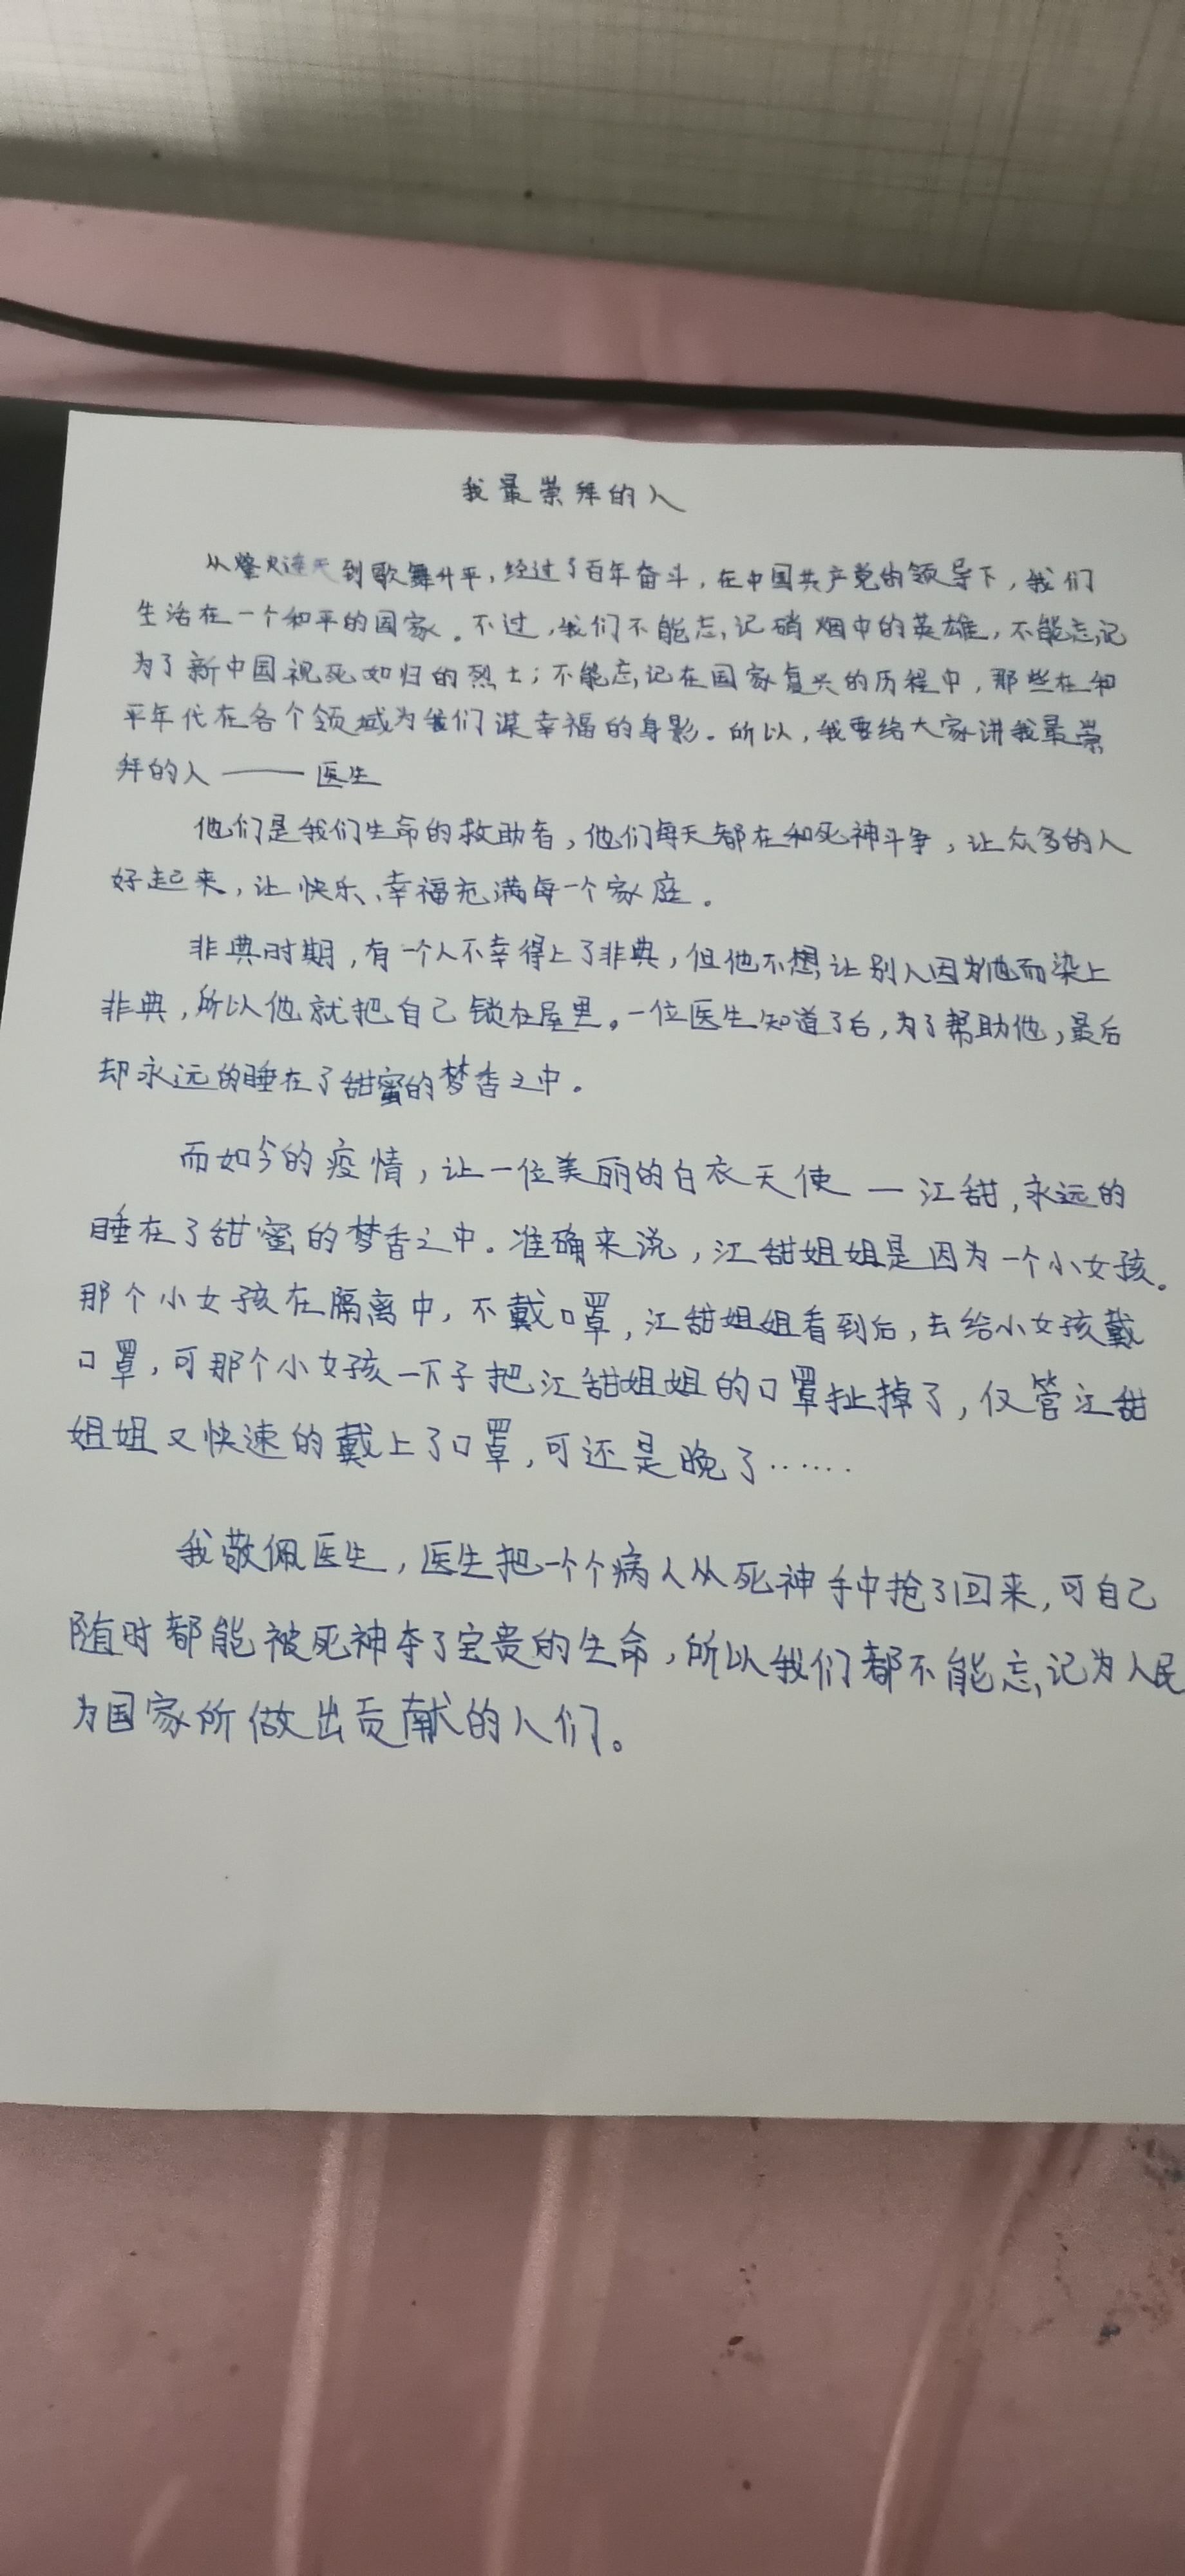 我最崇拜的人
从烽火连天到歌舞升平，经过了百年奋斗，在中国共产党的领导下，我们
生活在一个和平的国家。不过，我们不能忘记硝烟中的英雄，不能忘记
为了新中国视死如归的烈士；不能忘记在国家复兴的历程中，那些在和
平年代在各个领域为我们谋幸福的身影。所以，我要给大家讲我最崇
拜的人——医生
他们是我们生命的救助者，他们每天都在和死神斗争，让众多的人
好起来，让快乐、幸福充满每一个家庭。
非典时期，有一个人不幸得上了非典，但他不想让别人因为他而染上
非典，所以他就把自己锁在屋里。一位医生知道了后，为了帮助他，最后
却永远的睡在了甜蜜的梦香之中。
而如今的疫情，让一位美丽的白衣天使—江甜，永远的
睡在了甜蜜的梦香之中。准确来说，江甜姐姐是因为一个小女孩。
那个小女孩在隔离中，不戴口罩，江甜姐姐看到后，去给小女孩戴
口罩，可那个小女孩一下子把江甜姐姐的口罩扯掉了，仅管江甜
姐姐又快速的戴上了口罩，可还是晚了……
我敬佩医生，医生把一个个病人从死神手中抢了回来，可自己
随时都能被死神夺了宝贵的生命，所以我们都不能忘记为人民
为国家所做出贡献的人们。